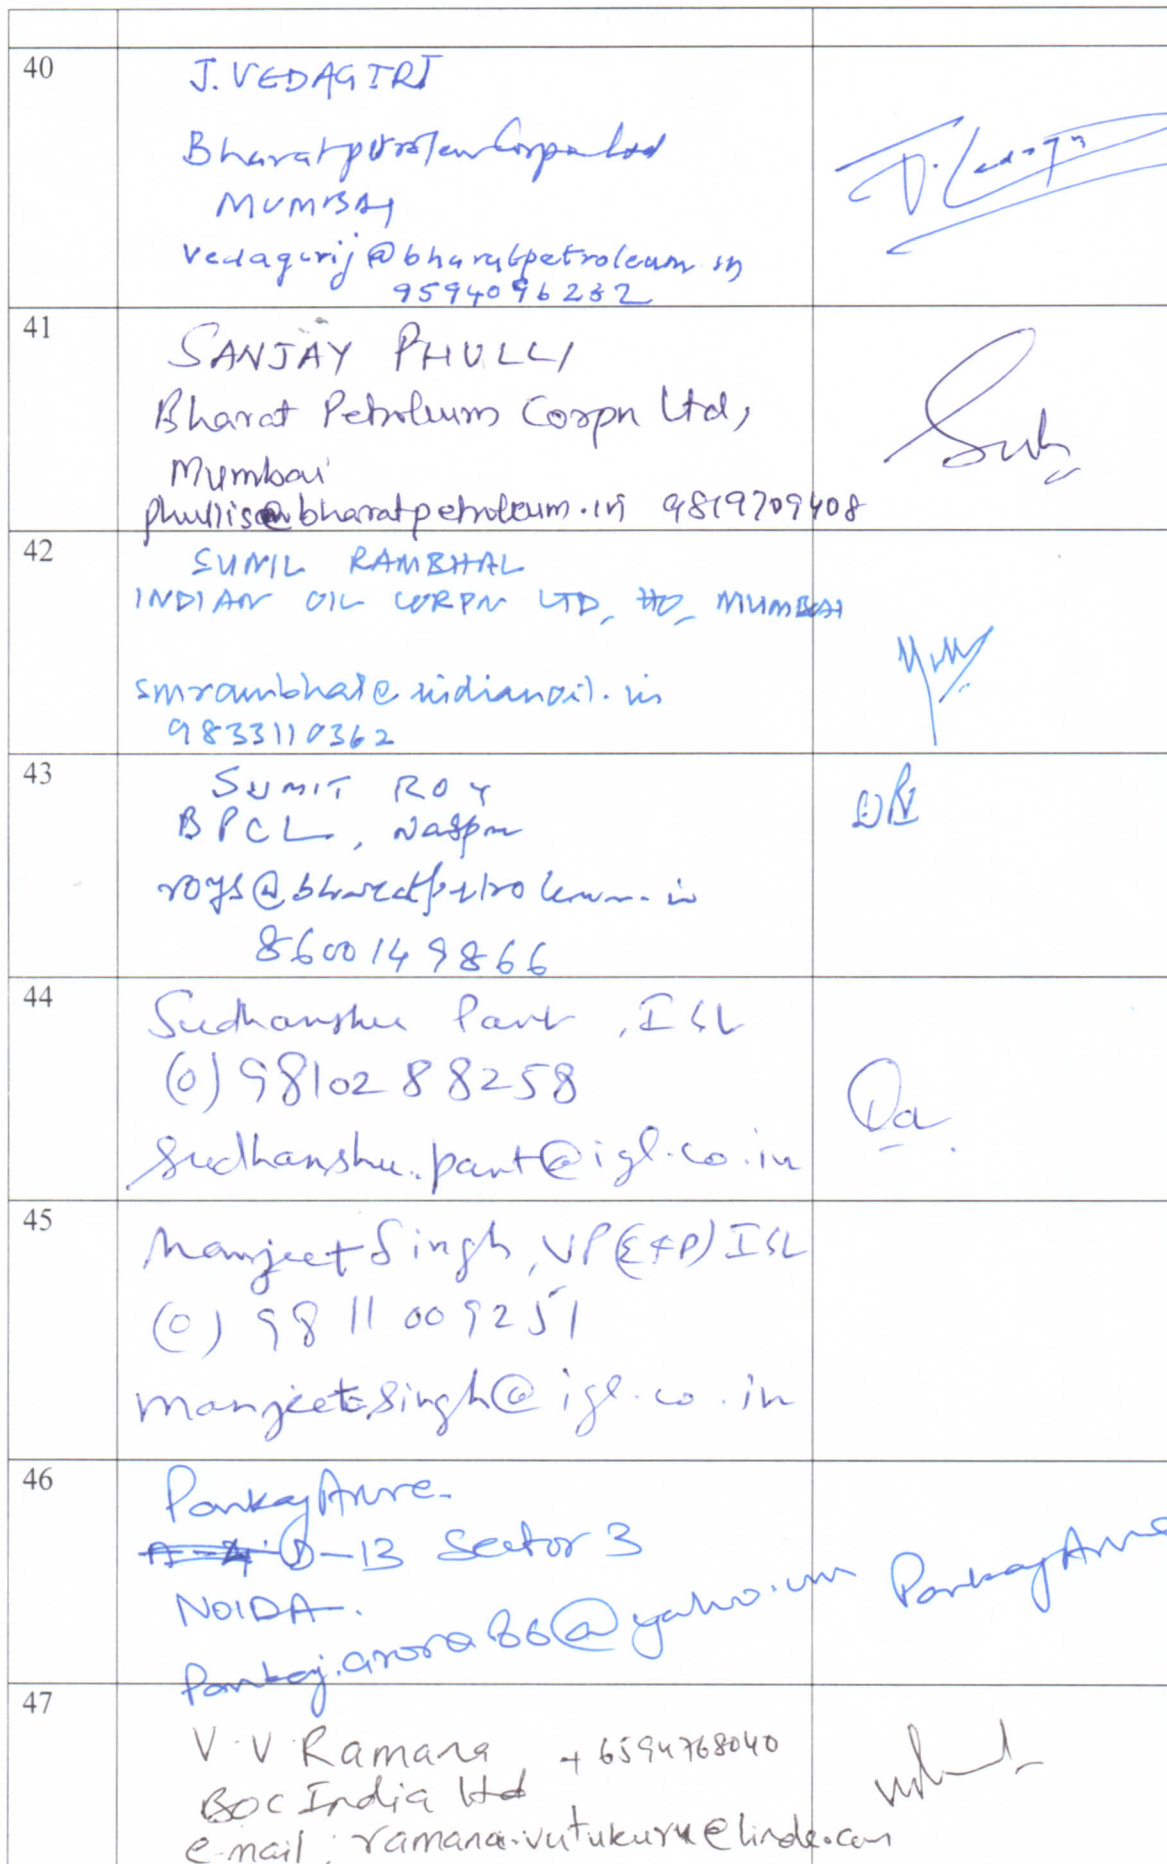 40
J. VEDAGIRI
Bharat petroleum Corpn Ltd
MUMBAI
vedagirij@bharatpetroleum.in
9594096232
41
SANJAY PHULLI
Bharat Petroleum Corpn Ltd,
Mumbai
phullis@bharatpetroleum.in 9819709408
42
SUNIL RAMBHAL
INDIAN OIL CORPN LTD, HO, MUMBAI
smrambhal@indianoil.in
9833110362
43
SUMIT ROY
BPCL, Nagpur
roys@bharatpetroleum.in
8600149866
44
Sudhanshu Pant, IGL
(O) 9810288258
sudhanshu.pant@igl.co.in
45
Manjeet Singh, VP (E&P) IGL
(O) 9811009251
manjeet.singh@igl.co.in
46
Pankaj Arora
D-13 Sector 3
NOIDA.
Pankaj.arora86@yahoo.com Pankaj Arora
47
V.V Ramana +6594768040
BOC India Ltd
e-mail: ramana.vutukuru@linde.com